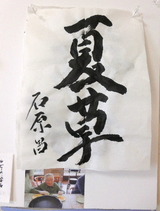 夏草
石原昌